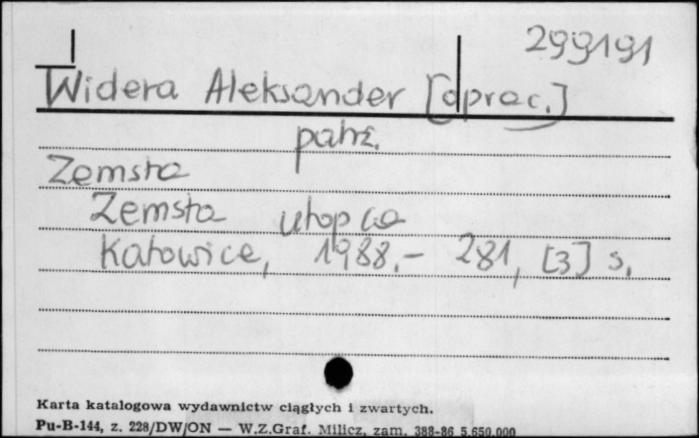 299191
Widera Aleksander [oprac.]
patrz.
Zemsta
Zemsta utopca
Katowice, 1988.- 281, [3] s.
Karta katalogowa wydawnictw ciągłych i zwartych.
Pu-B-144, z. 228/DW/ON — W.Z.Graf. Milicz, zam. 388-86 5.650.000